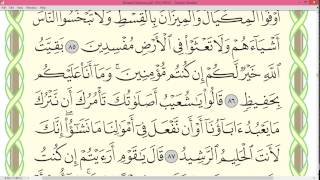 أَوْفُوا۟ ٱلْمِكْيَالَ وَٱلْمِيزَانَ بِٱلْقِسْطِ وَلَا تَبْخَسُوا۟ ٱلنَّاسَ
أَشْيَآءَهُمْ وَلَا تَعْثَوْا۟ فِى ٱلْأَرْضِ مُفْسِدِينَ ٨٥ بَقِيَّتُ
ٱللَّهِ خَيْرٌ لَّكُمْ إِن كُنتُم مُّؤْمِنِينَ وَمَآ أَنَا۠ عَلَيْكُم
بِحَفِيظٍ ٨٦ قَالُوا۟ يَٰشُعَيْبُ أَصَلَوٰتُكَ تَأْمُرُكَ أَن نَّتْرُكَ
مَا يَعْبُدُ ءَابَآؤُنَآ أَوْ أَن نَّفْعَلَ فِىٓ أَمْوَٰلِنَا مَا نَشَٰٓؤُا۟ إِنَّكَ
لَأَنتَ ٱلْحَلِيمُ ٱلرَّشِيدُ ٨٧ قَالَ يَٰقَوْمِ أَرَءَيْتُمْ إِن كُنتُ